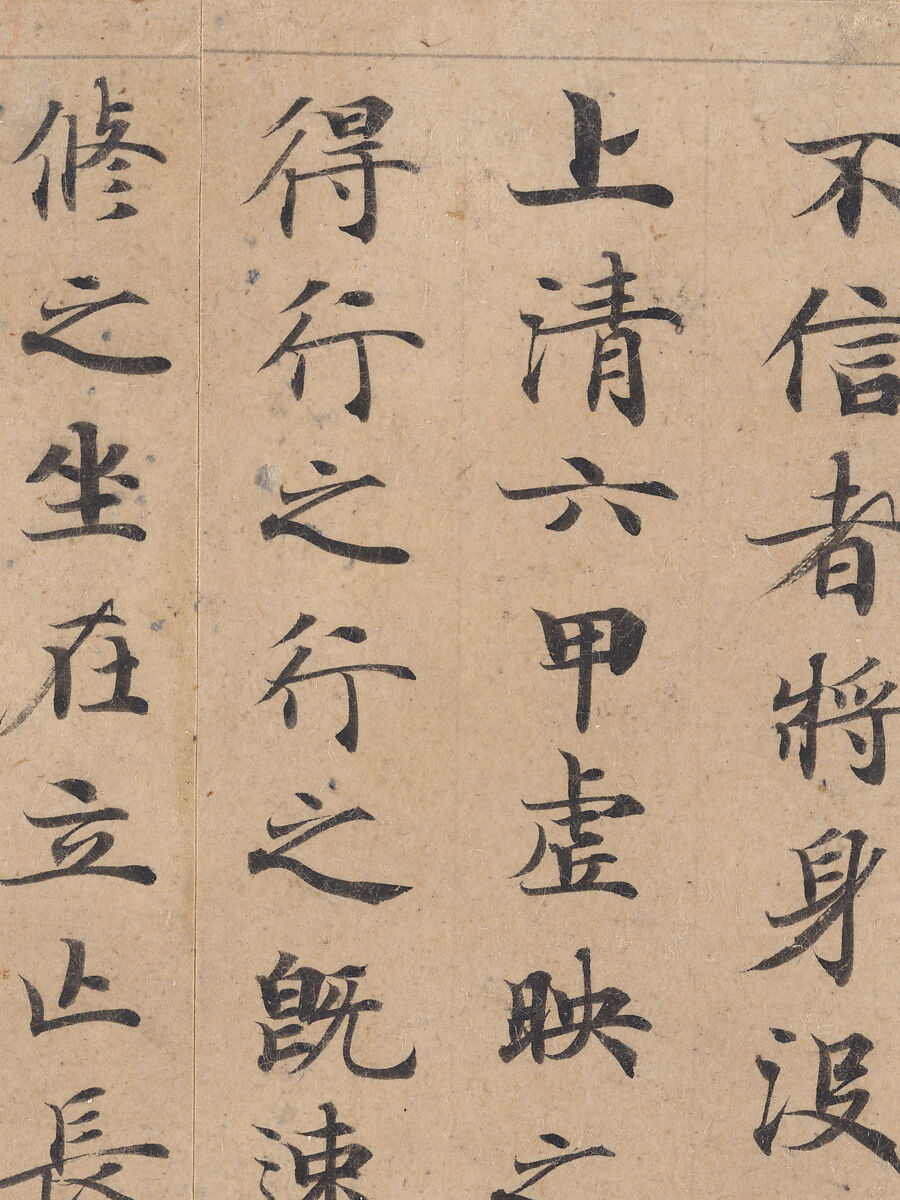 不信者將身没
上清六甲虛映之
得行之行之既速
修之坐在立止長